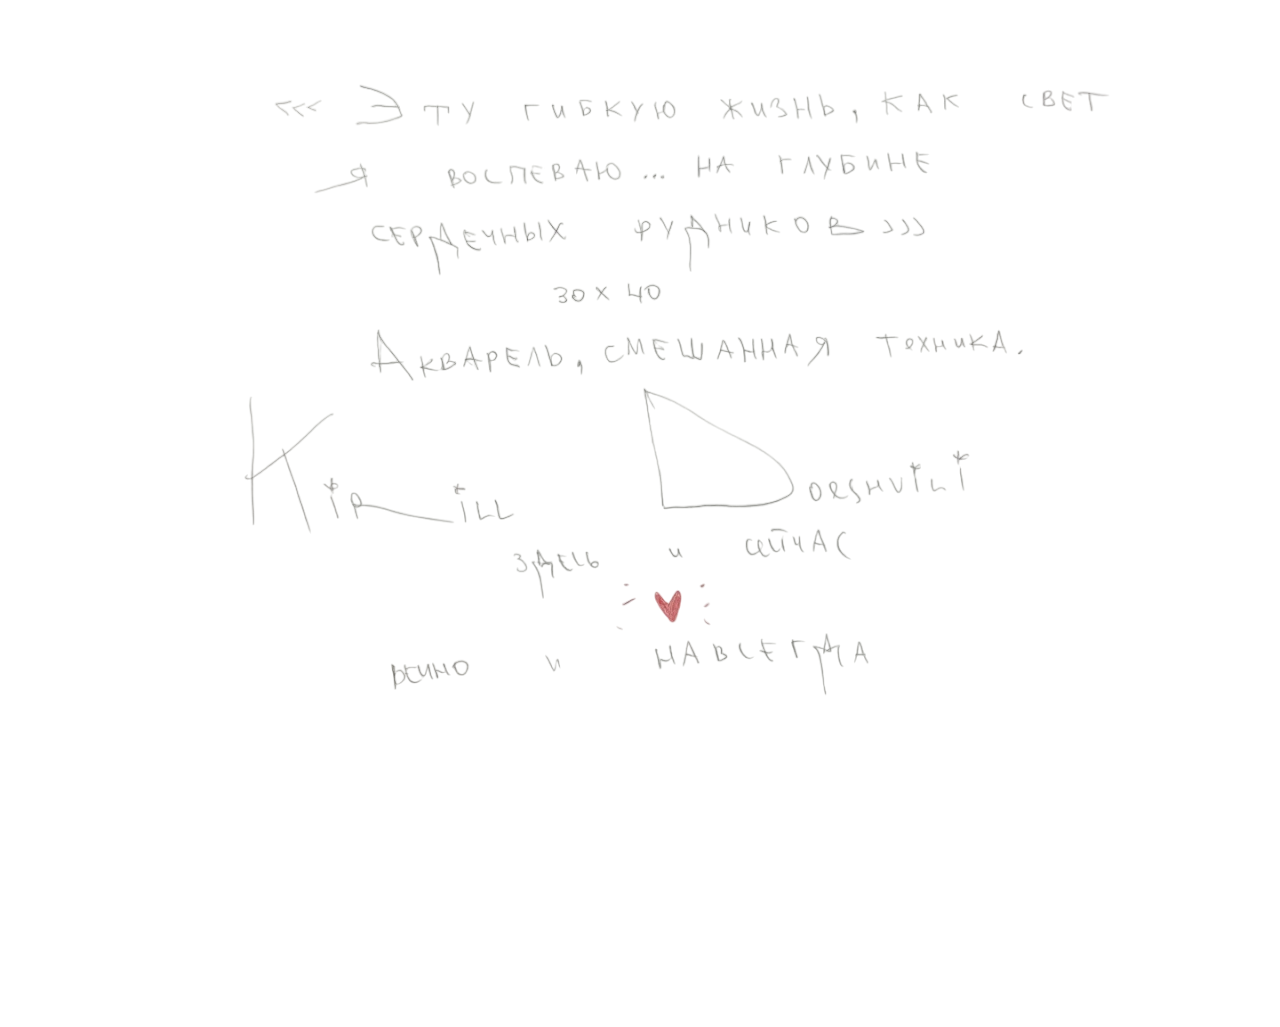 <<< Эту гибкую жизнь, как свет
я воспеваю... на глубине
сердечных рудников >>>
30 x 40
Акварель, смешанная техника.
Kirill Dorshvili
здесь и сейчас
вечно и навсегда